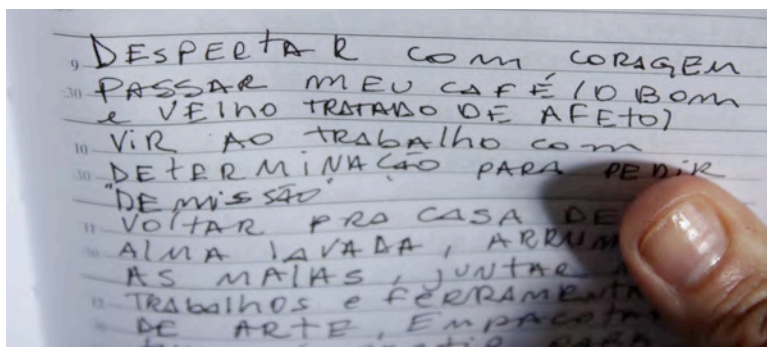 9 DESPERTAR COM CORAGEM
:30 PASSAR MEU CAFÉ (O BOM
e VELHO TRATADO DE AFETO)
10 VIR AO TRABALHO COM
:30 DETERMINAÇÃO PARA PEDIR
"DEMISSÃO"
11 VOLTAR PRA CASA DE
:30 ALMA LAVADA, ARRUM
AS MALAS, JUNTAR
12 TRABALHOS e FERRAMENTA
DE ARTE, EMPACOTA
PARA